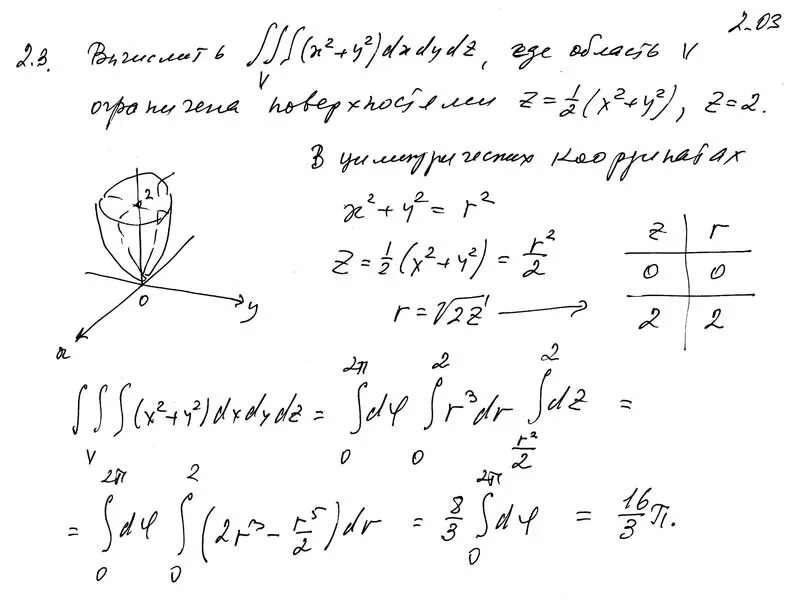 2.03
2.3. Вычислить ∭_V (x²+y²)dxdydz, где область V
ограничена поверхностями z=½(x²+y²), z=2.
В цилиндрических координатах
x²+y²=r²
z=½(x²+y²)=r²/2
r=√2z →
z | r
0 | 0
2 | 2
2
0
y
x
∭_V (x²+y²)dxdydz = ∫_0^{2π} dφ ∫_0^2 r³dr ∫_{r²/2}^2 dz =
= ∫_0^{2π} dφ ∫_0^2 (2r³ - r⁵/2)dr = 8/3 ∫_0^{2π} dφ = 16/3 π.